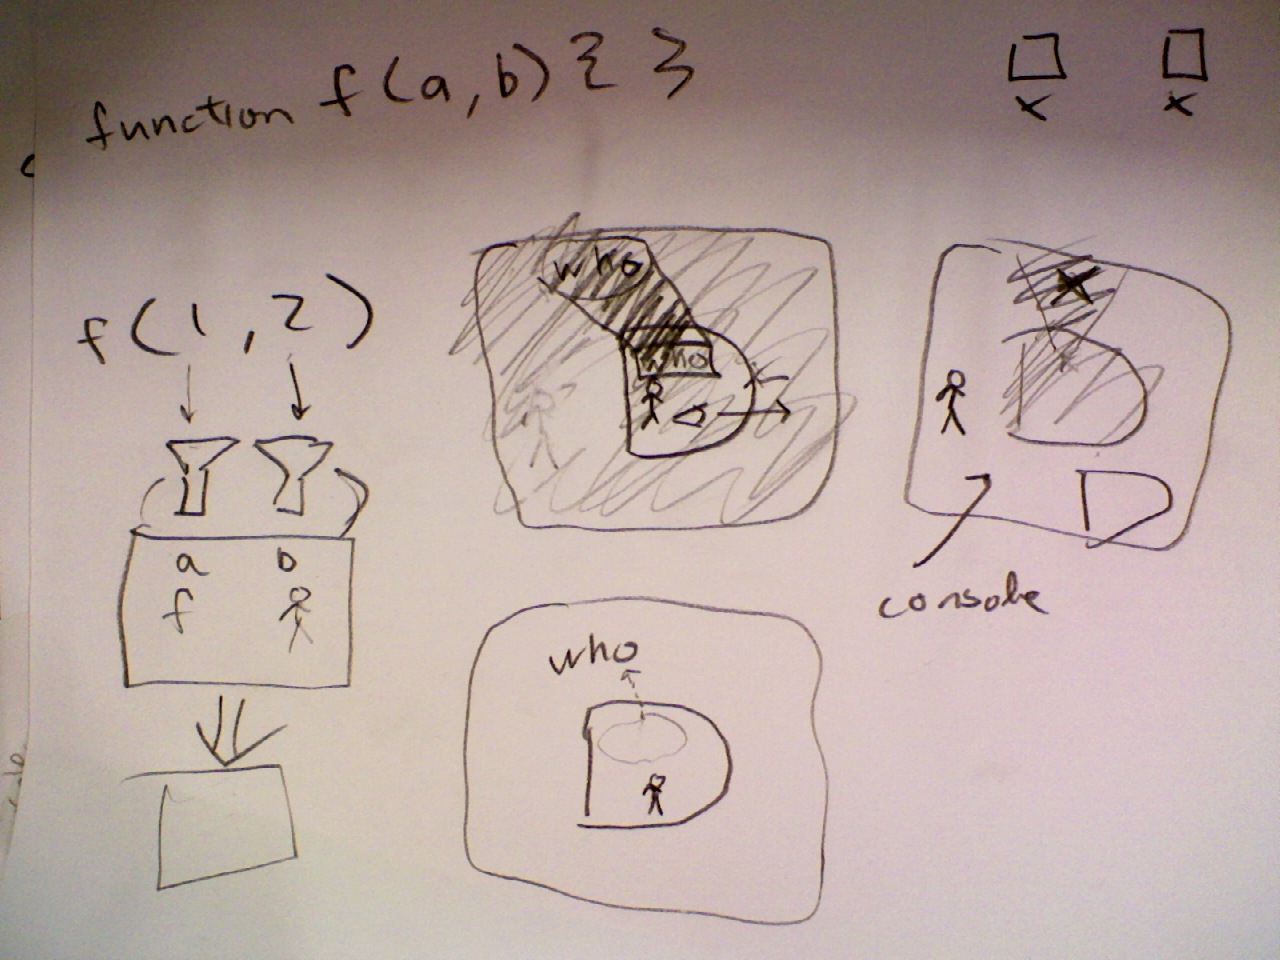 function f(a,b){ }
x x
f(1,2)
who
x
who
a b
f
console
who